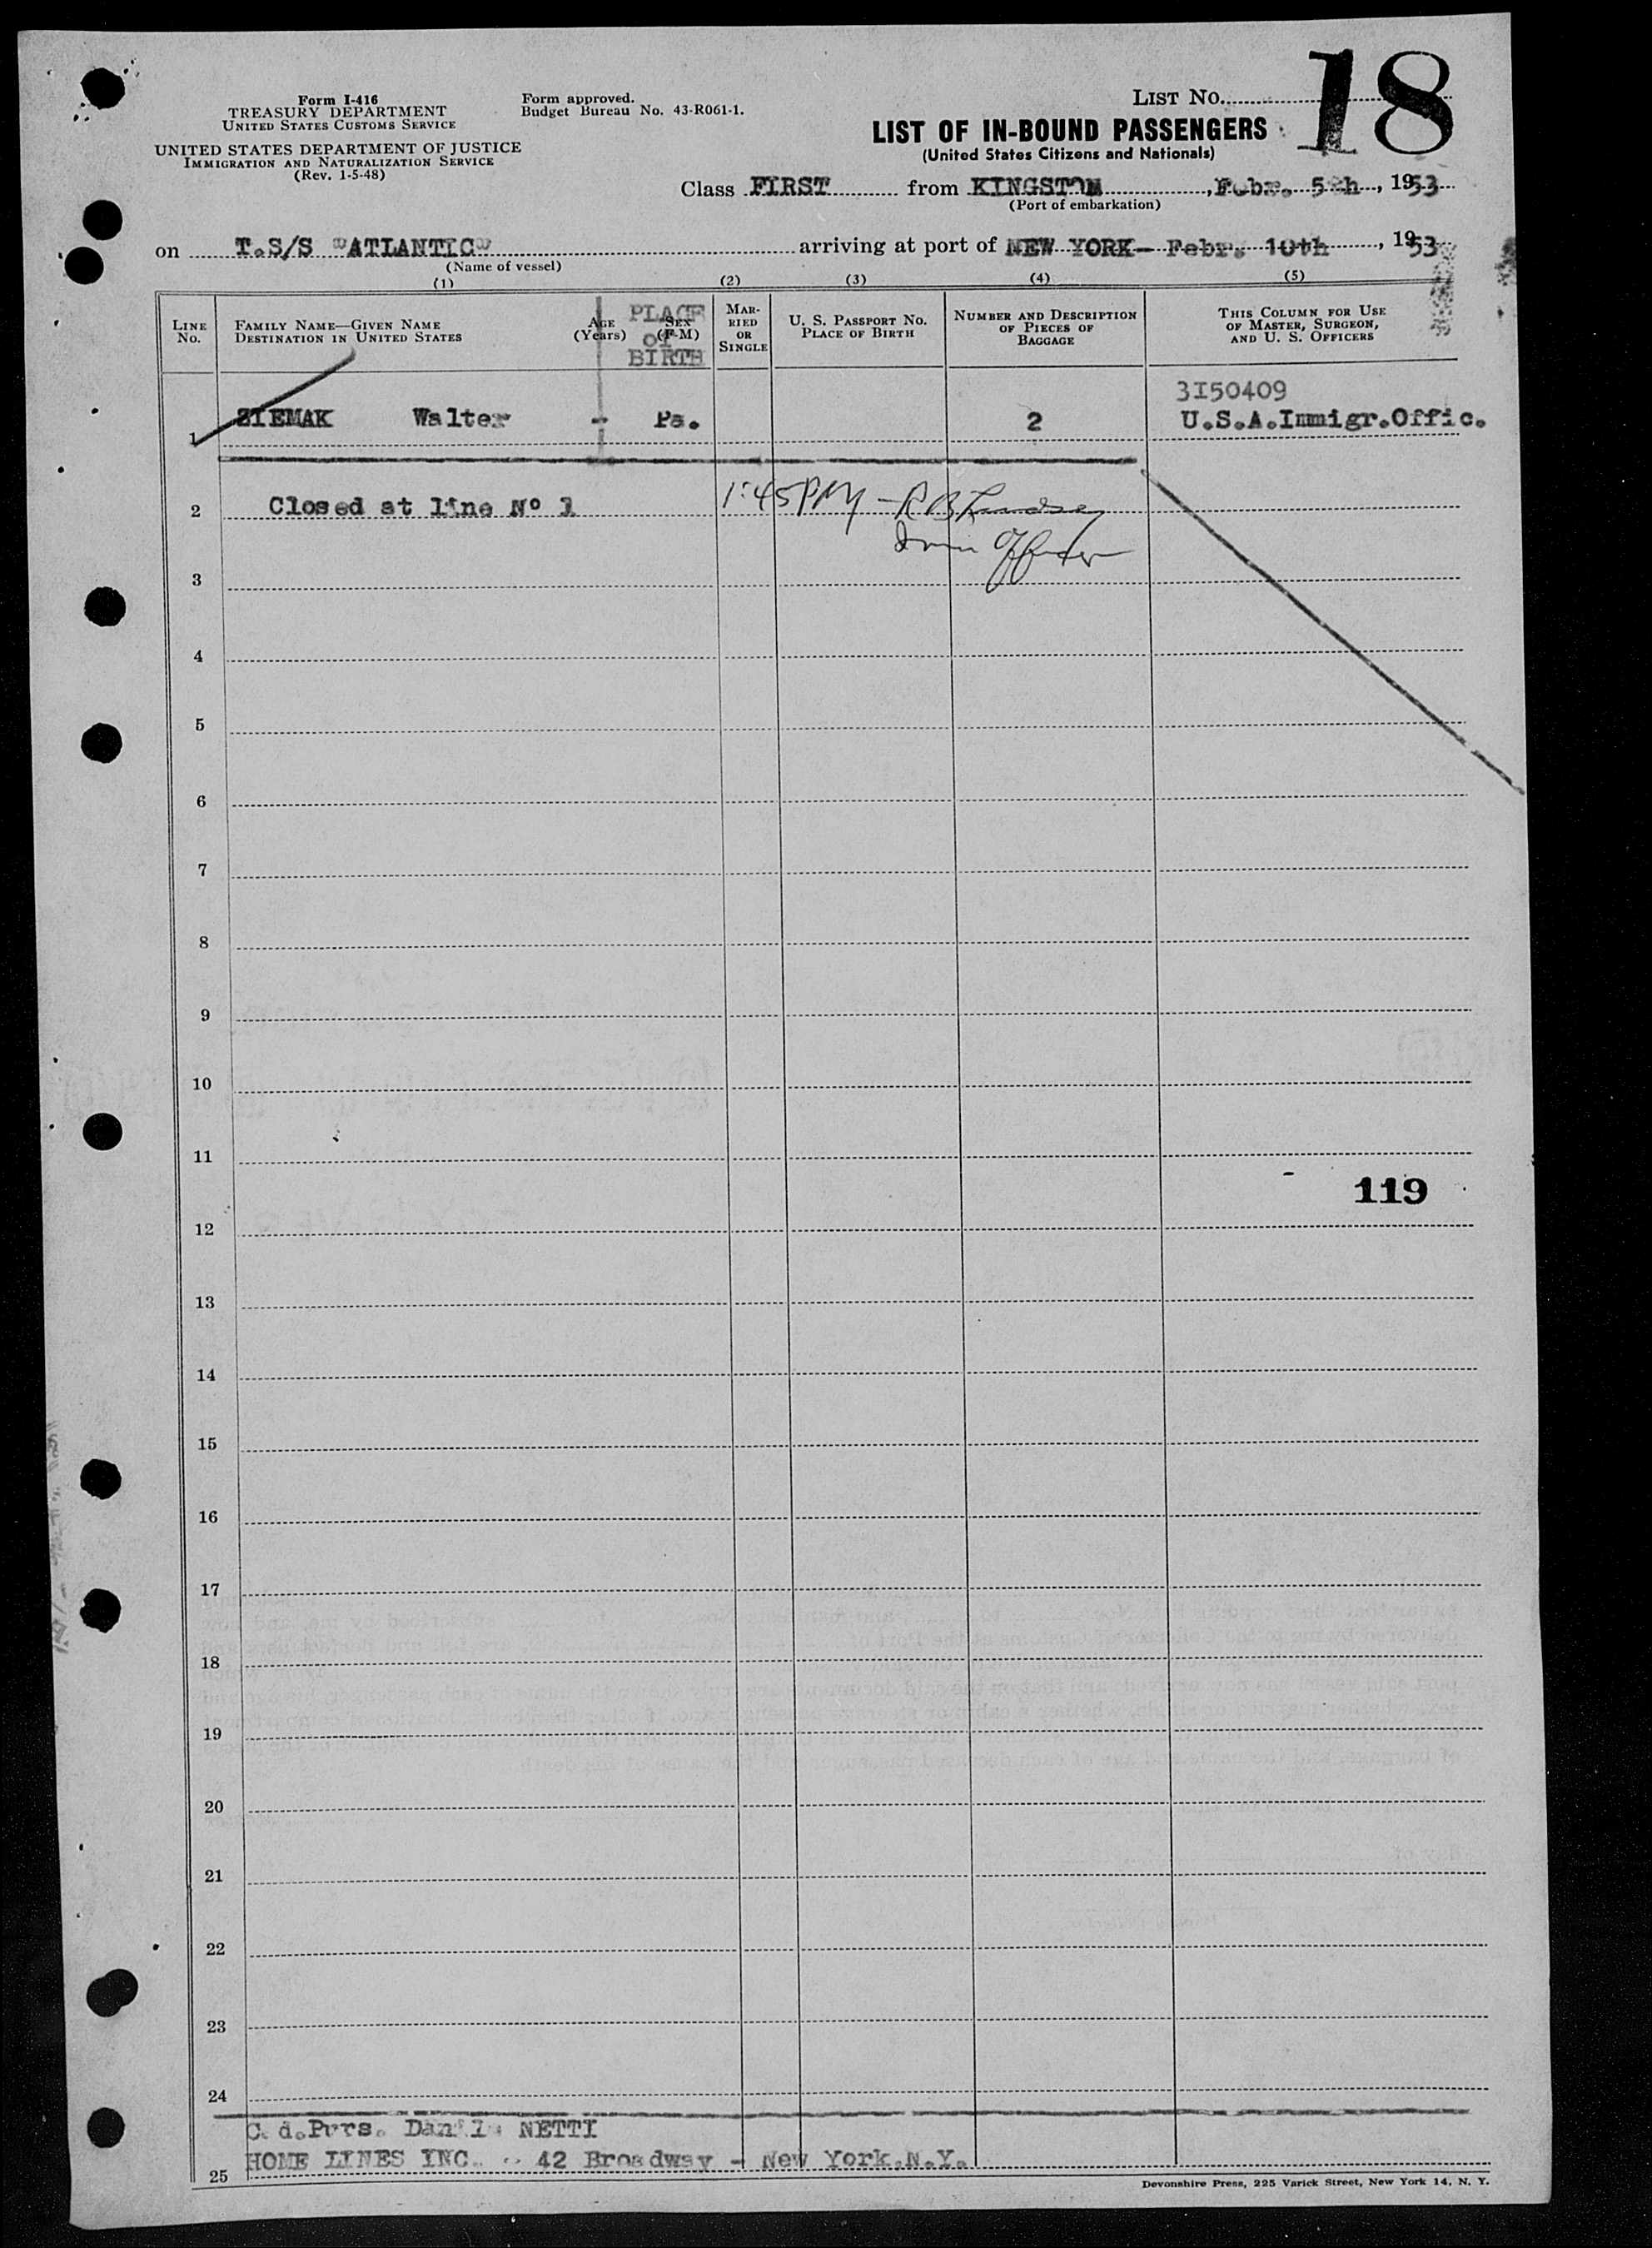 18
Form I-416
TREASURY DEPARTMENT
UNITED STATES CUSTOMS SERVICE
UNITED STATES DEPARTMENT OF JUSTICE
IMMIGRATION AND NATURALIZATION SERVICE
(Rev. 1-5-48)
Form approved.
Budget Bureau No. 43-R061-1.
LIST NO.
LIST OF IN-BOUND PASSENGERS
(United States Citizens and Nationals)
Class FIRST from KINGSTON, Febr. 5th, 1953
(Port of embarkation)
on T.S/S "ATLANTIC" arriving at port of NEW YORK- Febr. 10th, 1953
(Name of vessel)
(1) (2) (3) (4) (5)
LINE NO.
FAMILY NAME—GIVEN NAME
DESTINATION IN UNITED STATES
AGE (Years)
SEX (F-M)
PLACE OF BIRTH
MARRIED OR SINGLE
U. S. PASSPORT NO.
PLACE OF BIRTH
NUMBER AND DESCRIPTION OF PIECES OF BAGGAGE
THIS COLUMN FOR USE OF MASTER, SURGEON, AND U. S. OFFICERS
3150409
1 ZIEMAK Walter - Pa. 2 U.S.A.Immigr.Offic.
2 Closed at line Nº 1 1:45PM - R B
3
4
5
6
7
8
9
10
11
119
12
13
14
15
16
17
18
19
20
21
22
23
24
C.d.Purs. NETTI
25 HOME LINES INC. - 42 Broadway - New York.N.Y.
Devonshire Press, 225 Varick Street, New York 14, N. Y.